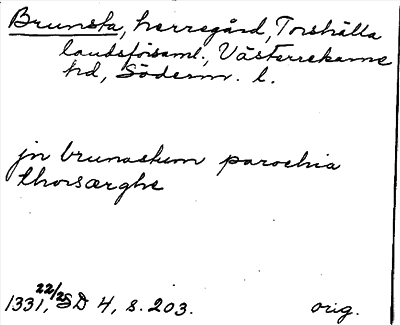 Brunsta, herregård, Torshälla
landsförsaml., Västerrekarne
hd, Söderm. l.
jn brunastum parochia
thorsærghe
1331, 22/2 SD 4, s. 203. orig.